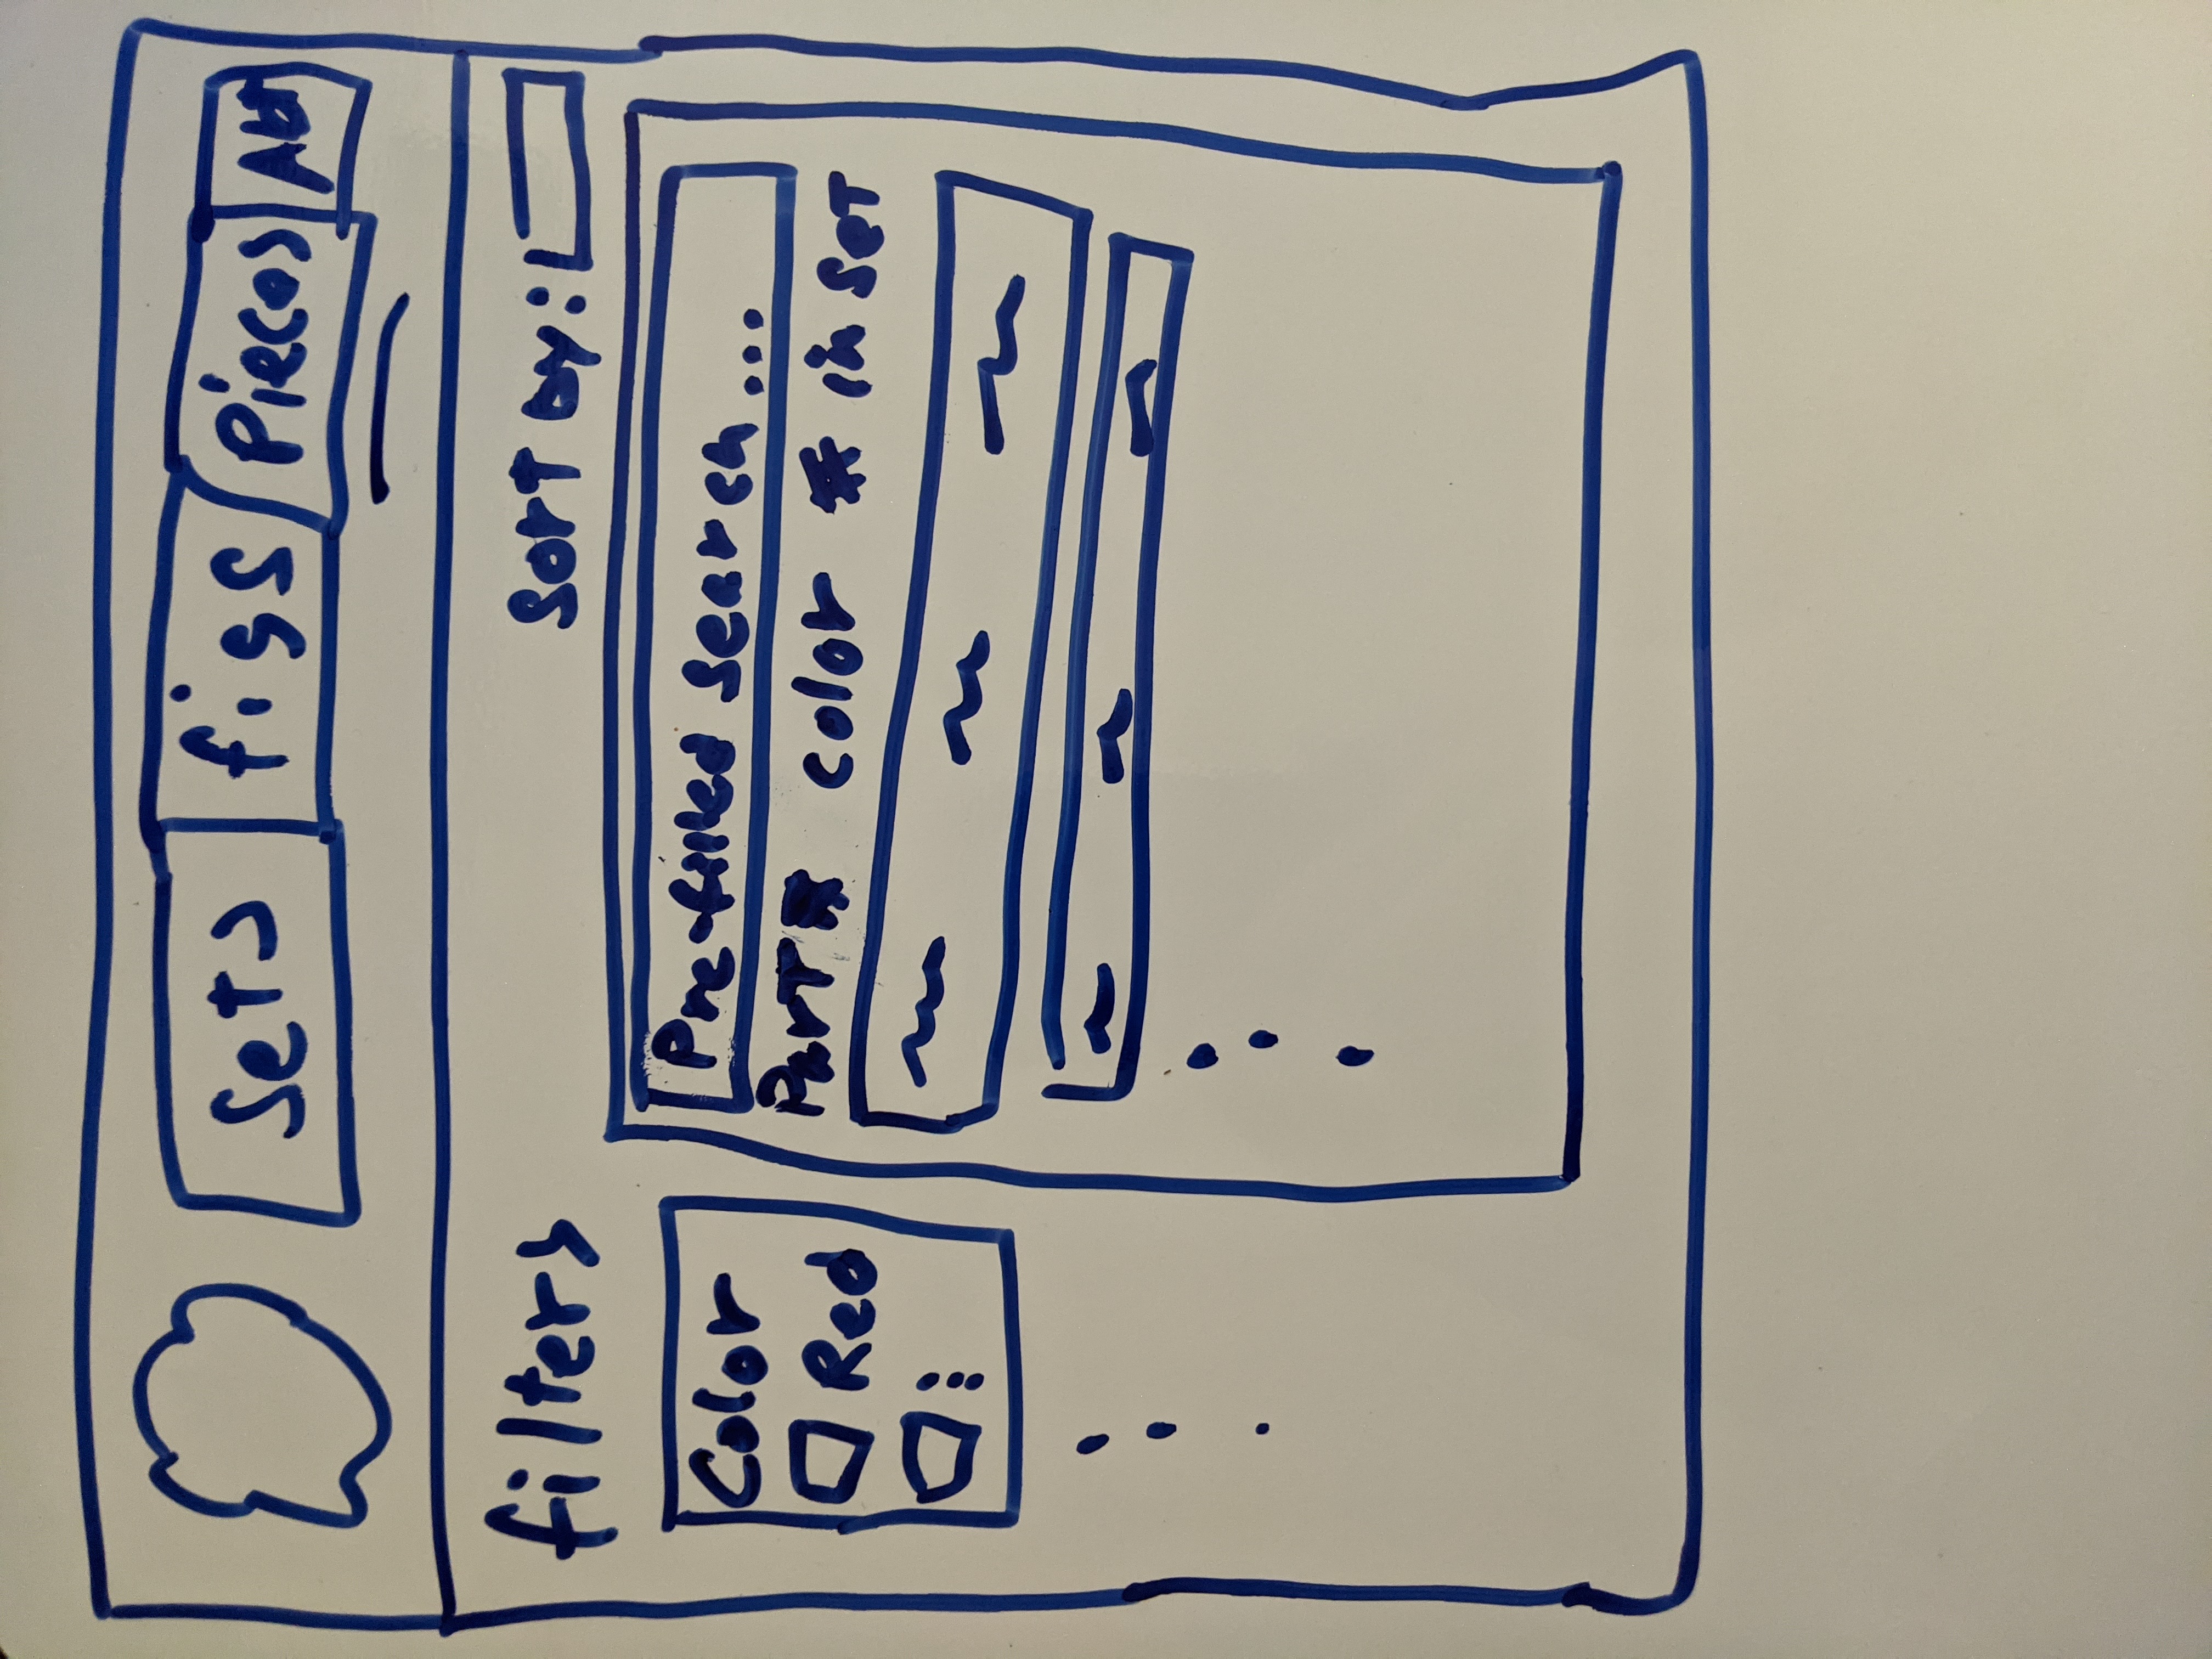 Sets figs Pieces Abt
filters
Sort by:
Color
Red
Pre-filled search...
Part # Color # in Set